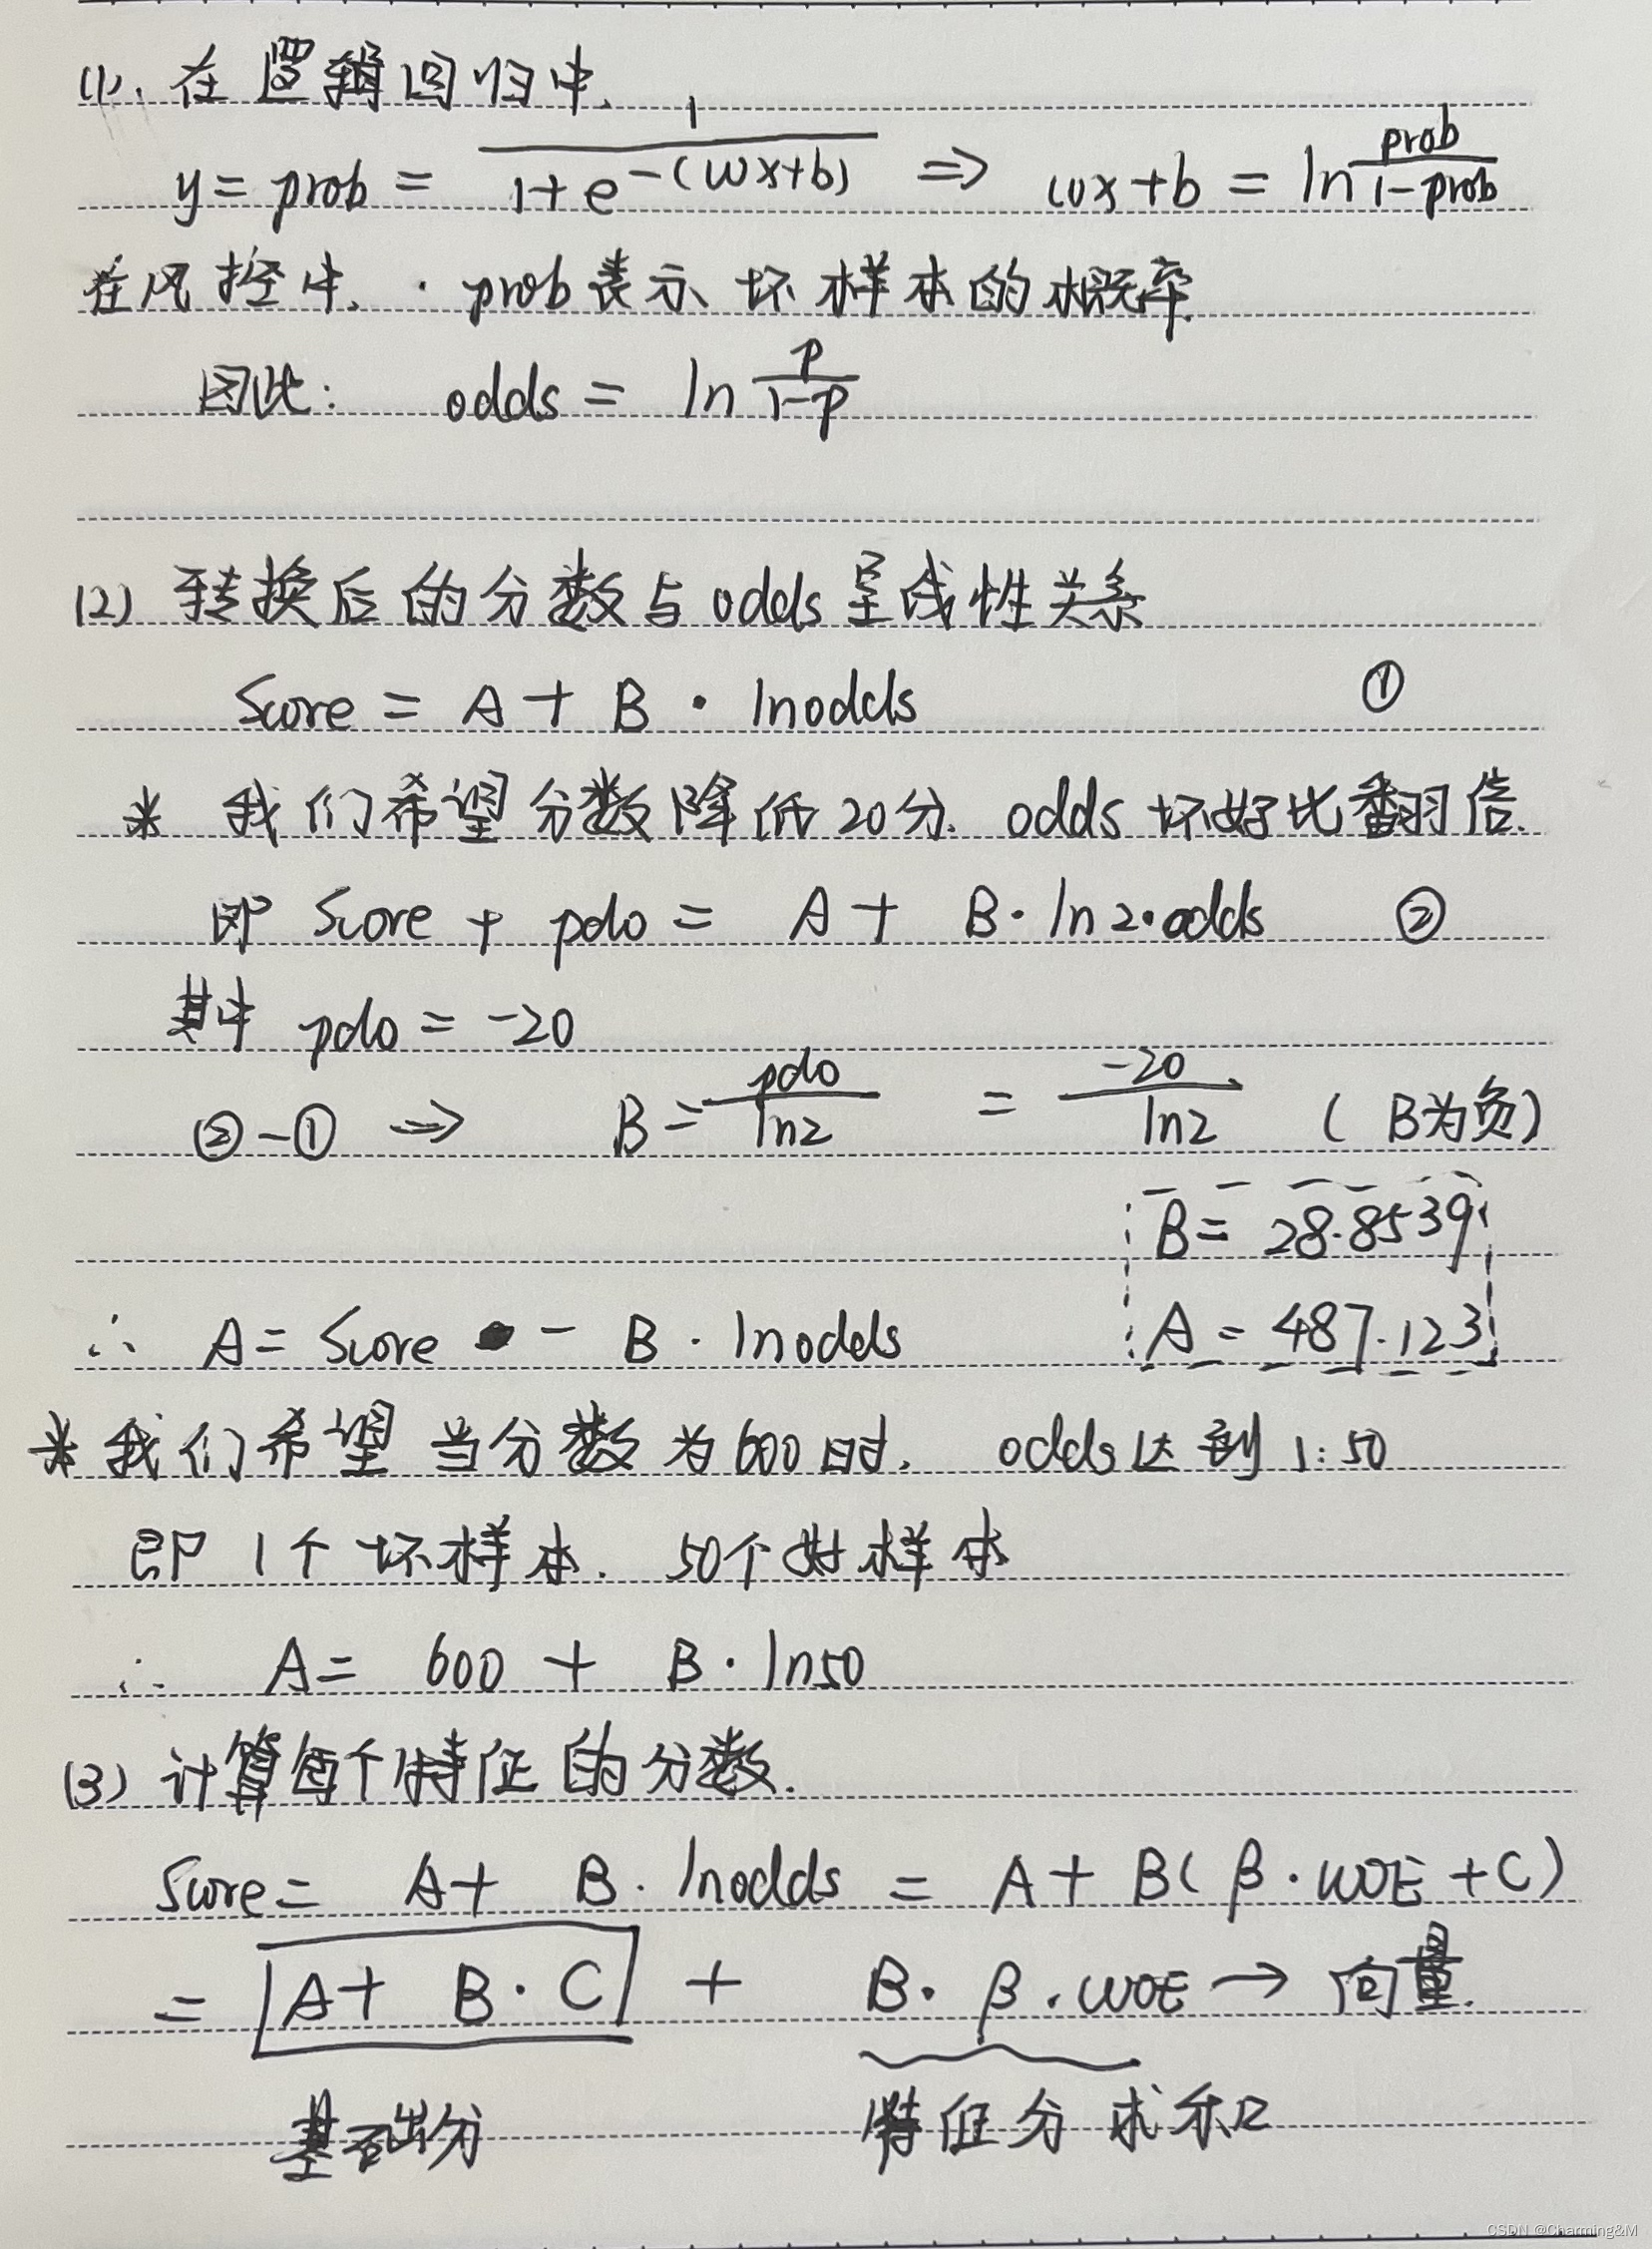 (1). 在逻辑回归中.
y = prob = 1/(1+e^-(wx+b)) ⇒ wx+b = ln prob/(1-prob)
在风控中. · prob表示坏样本的概率.
因此: odds = ln p/(1-p)
(2) 转换后的分数与odds呈线性关系
Score = A + B · lnodds ①
* 我们希望分数降低20分. odds 坏好比翻倍.
即 Score + pdo = A + B · ln2·odds ②
其中 pdo = -20
②-① ⇒ B = pdo/ln2 = -20/ln2 ( B为负)
B = 28.8539
A = 487.123
∴ A = Score - B · lnodds
* 我们希望当分数为600时. odds达到1:50
即 1个坏样本. 50个好样本
∴ A = 600 + B · ln50
(3) 计算每个特征的分数.
Score = A + B · lnodds = A + B( β · WOE + C)
= A + B · C + B · β · WOE → 向量.
基础分 特征分求和
CSDN @Charming&M